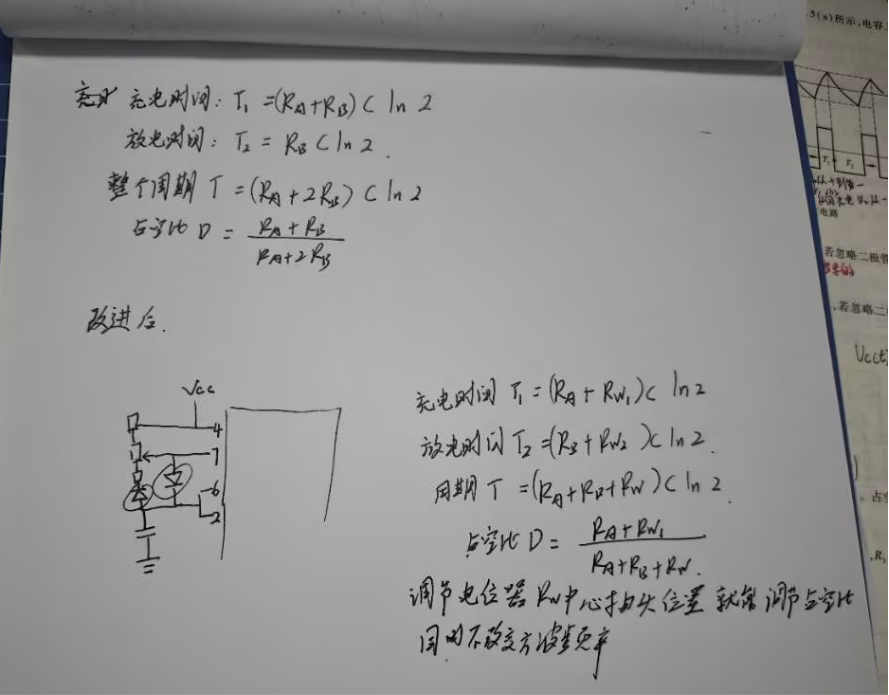 充电时间: T₁ = (R_A+R_B) C ln 2
放电时间: T₂ = R_B C ln 2.
整个周期 T = (R_A + 2R_B) C ln 2
占空比 D = (R_A + R_B) / (R_A + 2R_B)
改进后.
Vcc
4
7
6
2
充电时间 T₁ = (R_A + R_W₁)C ln 2
放电时间 T₂ = (R_B + R_W₂)C ln 2.
周期 T = (R_A+R_B+R_W) C ln 2.
占空比 D = (R_A + R_W₁) / (R_A + R_B + R_W.)
调节电位器 R_W 中心抽头位置 就能 调节占空比
同时不改变方波频率
5(a)所示,电容
T₁ T₂
电路
若忽略二极管
,若忽略二
Vcc(t)
。占空
,R₁